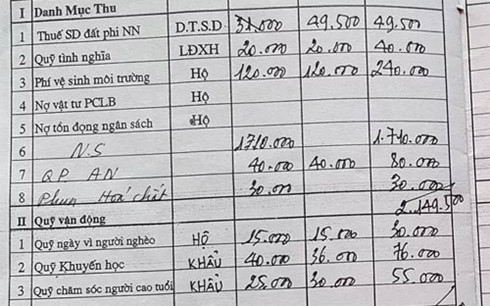 I Danh Mục Thu
1 Thuế SD đất phi NN D.T.S.D 31.000 49.500 49.500
2 Quỹ tình nghĩa LĐXH 20.000 20.000 40.000
3 Phí vệ sinh môi trường Hộ 120.000 120.000 240.000
4 Nợ vật tư PCLB Hộ
5 Nợ tồn đọng ngân sách Hộ
6 N.S 1710.000 1.710.000
7 QP AN 40.000 40.000 80.000
8 Phun Hoá chất 30.000 30.000
2.149.500
II Quỹ vận động
1 Quỹ ngày vì người nghèo HỘ 15.000 15.000 30.000
2 Quỹ Khuyến học KHẨU 40.000 36.000 76.000
3 Quỹ chăm sóc người cao tuổi KHẨU 25.000 30.000 55.000